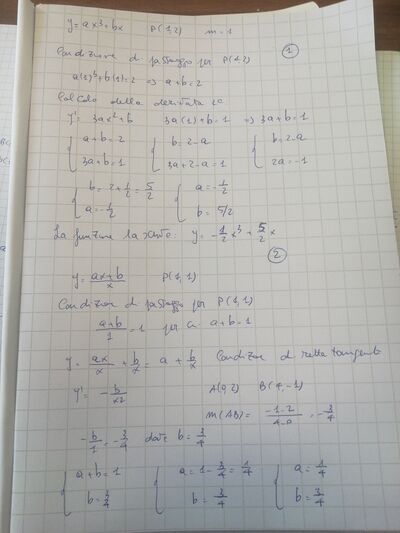 y = ax³ + bx P(1,2) m = 1
1
Condizione di passaggio per P(1,2)
a(1)³ + b(1) = 2 => a + b = 2
Calcolo della derivata
y' = 3ax² + b 3a(1) + b = 1 => 3a + b = 1
a + b = 2 b = 2 - a b = 2 - a
3a + b = 1 3a + 2 - a = 1 2a = -1
b = 2 + 1/2 = 5/2 a = -1/2
a = -1/2 b = 5/2
La funzione y = -1/2 x³ + 5/2 x
2
y = ax + b / x P(1,1)
Condizione di passaggio per P(1,1)
a + b / 1 = 1 a + b = 1
y = ax/x + b/x = a + b/x Condizione di retta tangente
y' = - b/x² A(0,2) B(4,-1)
m(AB) = -1-2 / 4-0 = -3/4
-b/1 = -3/4 b = 3/4
a + b = 1 a = 1 - 3/4 = 1/4 a = 1/4
b = 3/4 b = 3/4 b = 3/4